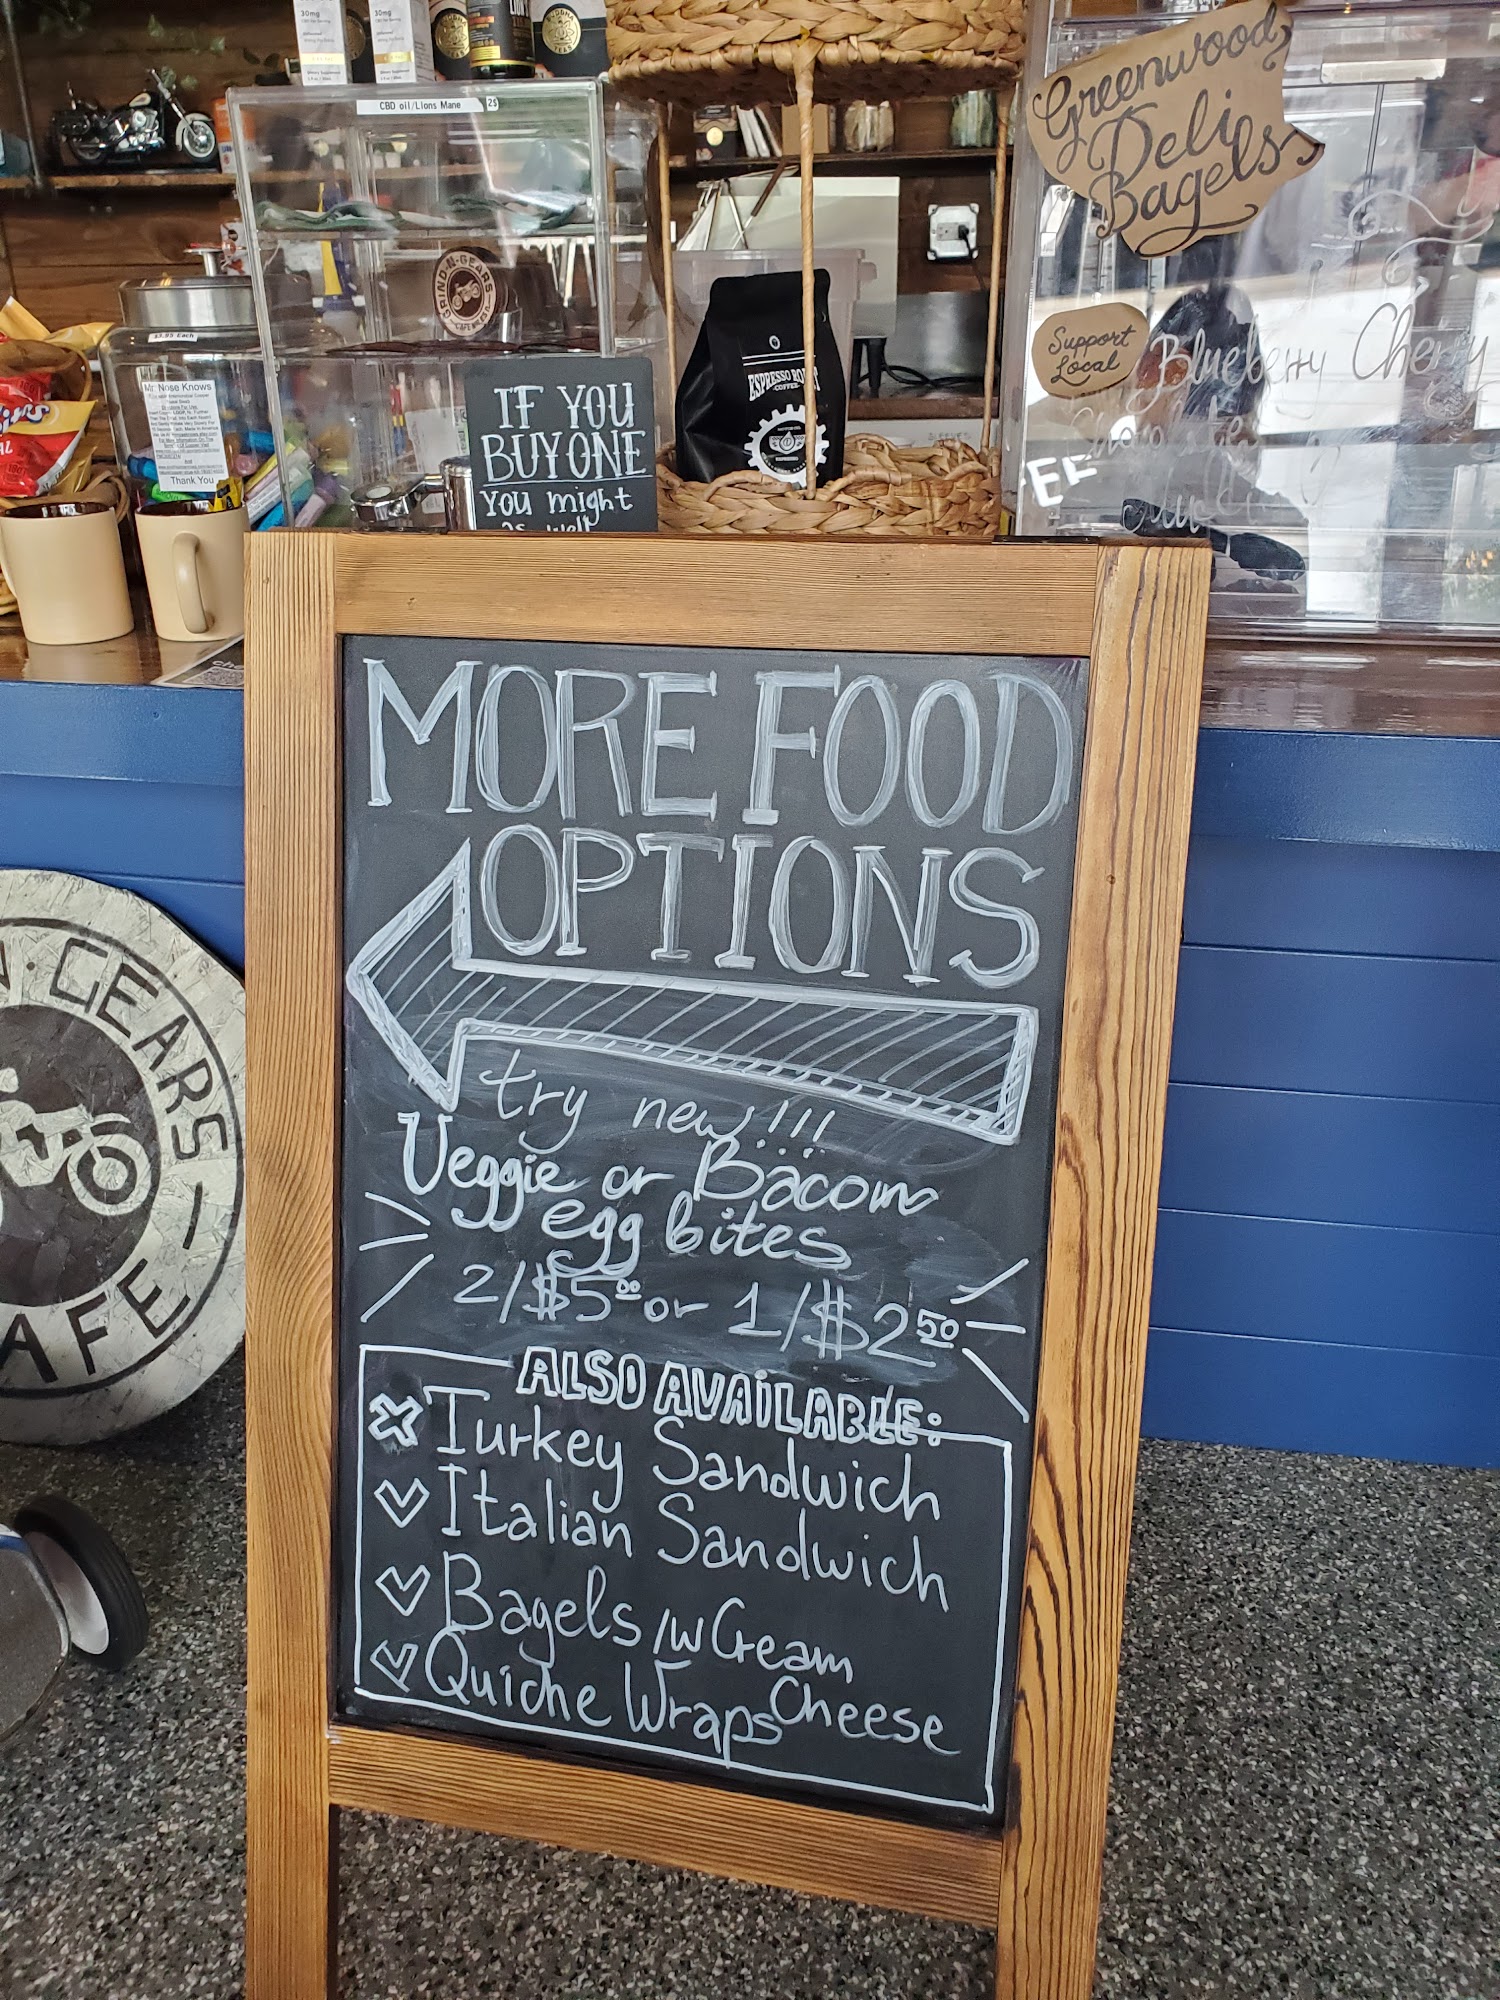 30mg
30mg
CBD oil/Lions Mane
25
Greenwood
Deli
Bagels
GRIND-N-GEARS
CAFE
$3.95 Each
Mr. Nose Knows
Thank You
Support
Local
Blueberry Cherry
IF YOU
BUY ONE
You might
as well
ESPRESSO ROAST
COFFEE
MORE FOOD
OPTIONS
try new!!!
Veggie or Bacon
egg bites
2/$5.00 or 1/$2.50
ALSO AVAILABLE:
Turkey Sandwich
Italian Sandwich
Bagels /w Cream
Cheese
Quiche Wraps
N-GEARS-
CAFE